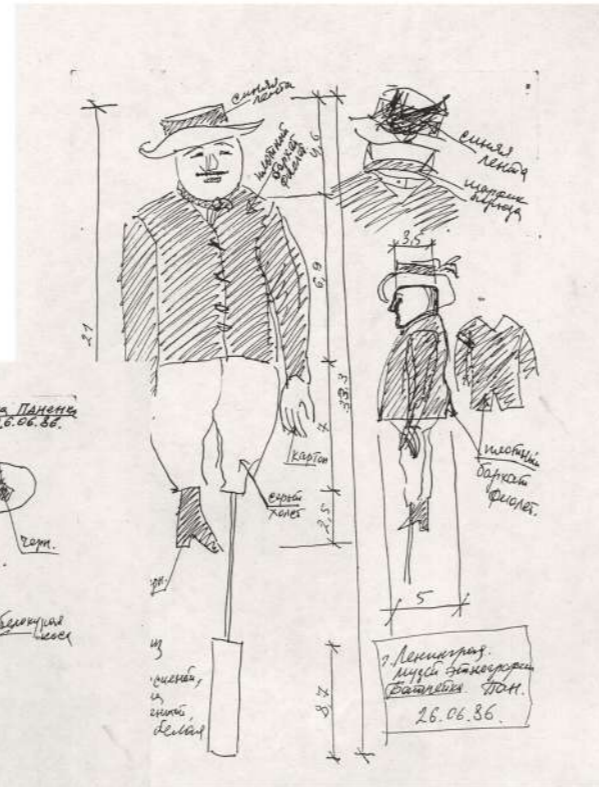 синяя
лента
плотный
бархат
фиолет
4,6
21
6,9
33,3
7
2,5
8,7
картон
серый
холст
белая
синяя
лента
шарфик
3,5
плотный
бархат
фиолет.
5
г. Ленинград.
музей этнографии
Батлейка. Пан.
26.06.86.
а Паненка
26.06.86.
черн.
белокурая
коса